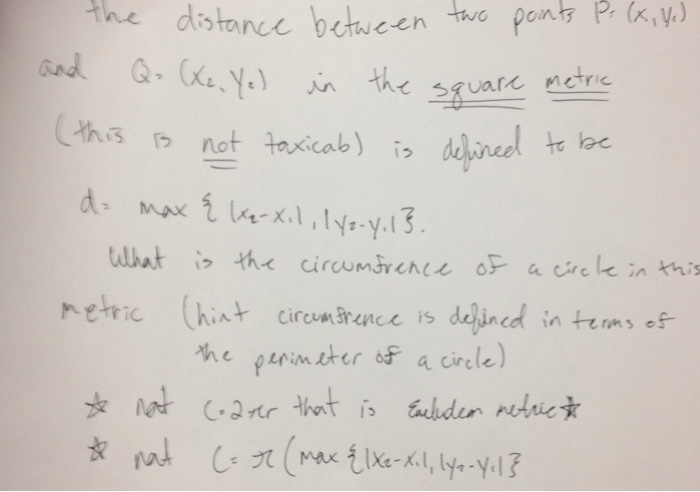 the distance between two points P=(x,y,)
and Q=(x₂,y₂) in the square metric
(this is not taxicab) is defined to be
d= max {|x₂-x₁|,|y₂-y₁|}.
What is the circumfrence of a circle in this
metric (hint circumfrence is defined in terms of
the perimeter of a circle)
☆ not C=2πr that is Eucliden metric☆
☆ not C=π(max {|x₂-x₁|,|y₂-y₁|}